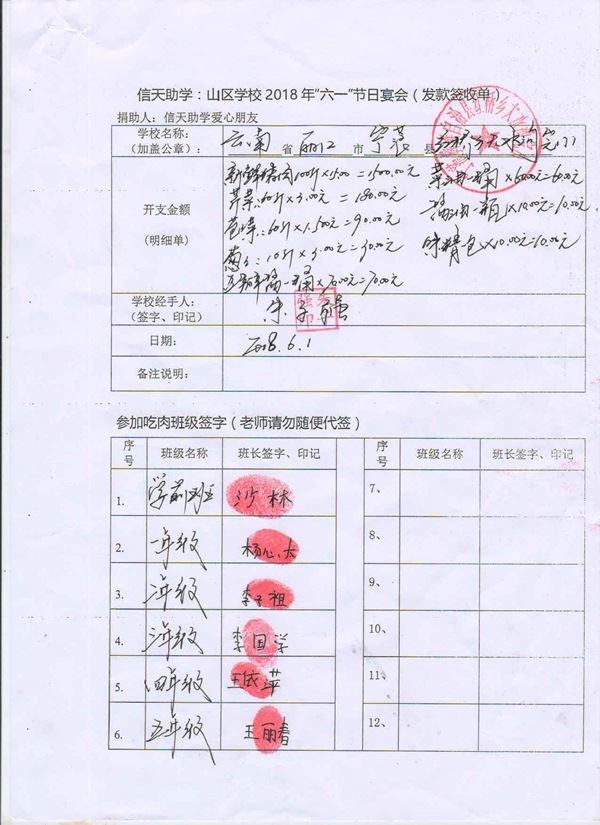 信天助学：山区学校2018年“六一”节日宴会（发款签收单）
捐助人：信天助学爱心朋友
学校名称：
（加盖公章）：
云南 省 丽江 市 宁蒗 县
开支金额
（明细单）
新鲜猪肉100斤×15.00=1500.00元
芹菜:60斤×3.00元=180.00元
60斤×1.500元=90.00元
葱子:10斤×3.00元=30.00元
豆瓣酱一桶×70.00元=70.00元
菜油一桶×60.00元=60.00元
酱油一瓶×10.00元=10.00元
味精包×10.00元=10.00元
学校经手人：
（签字、印记）
朱子强
日期：
2018.6.1
备注说明：
参加吃肉班级签字（老师请勿随便代签）
序号 班级名称 班长签字、印记 序号 班级名称 班长签字、印记
1. 学前班 沙林 7、
2. 一年级 杨心太 8、
3. 二年级 李子祖 9、
4. 三年级 李国学 10、
5. 四年级 王依萍 11、
6. 五年级 王丽春 12、